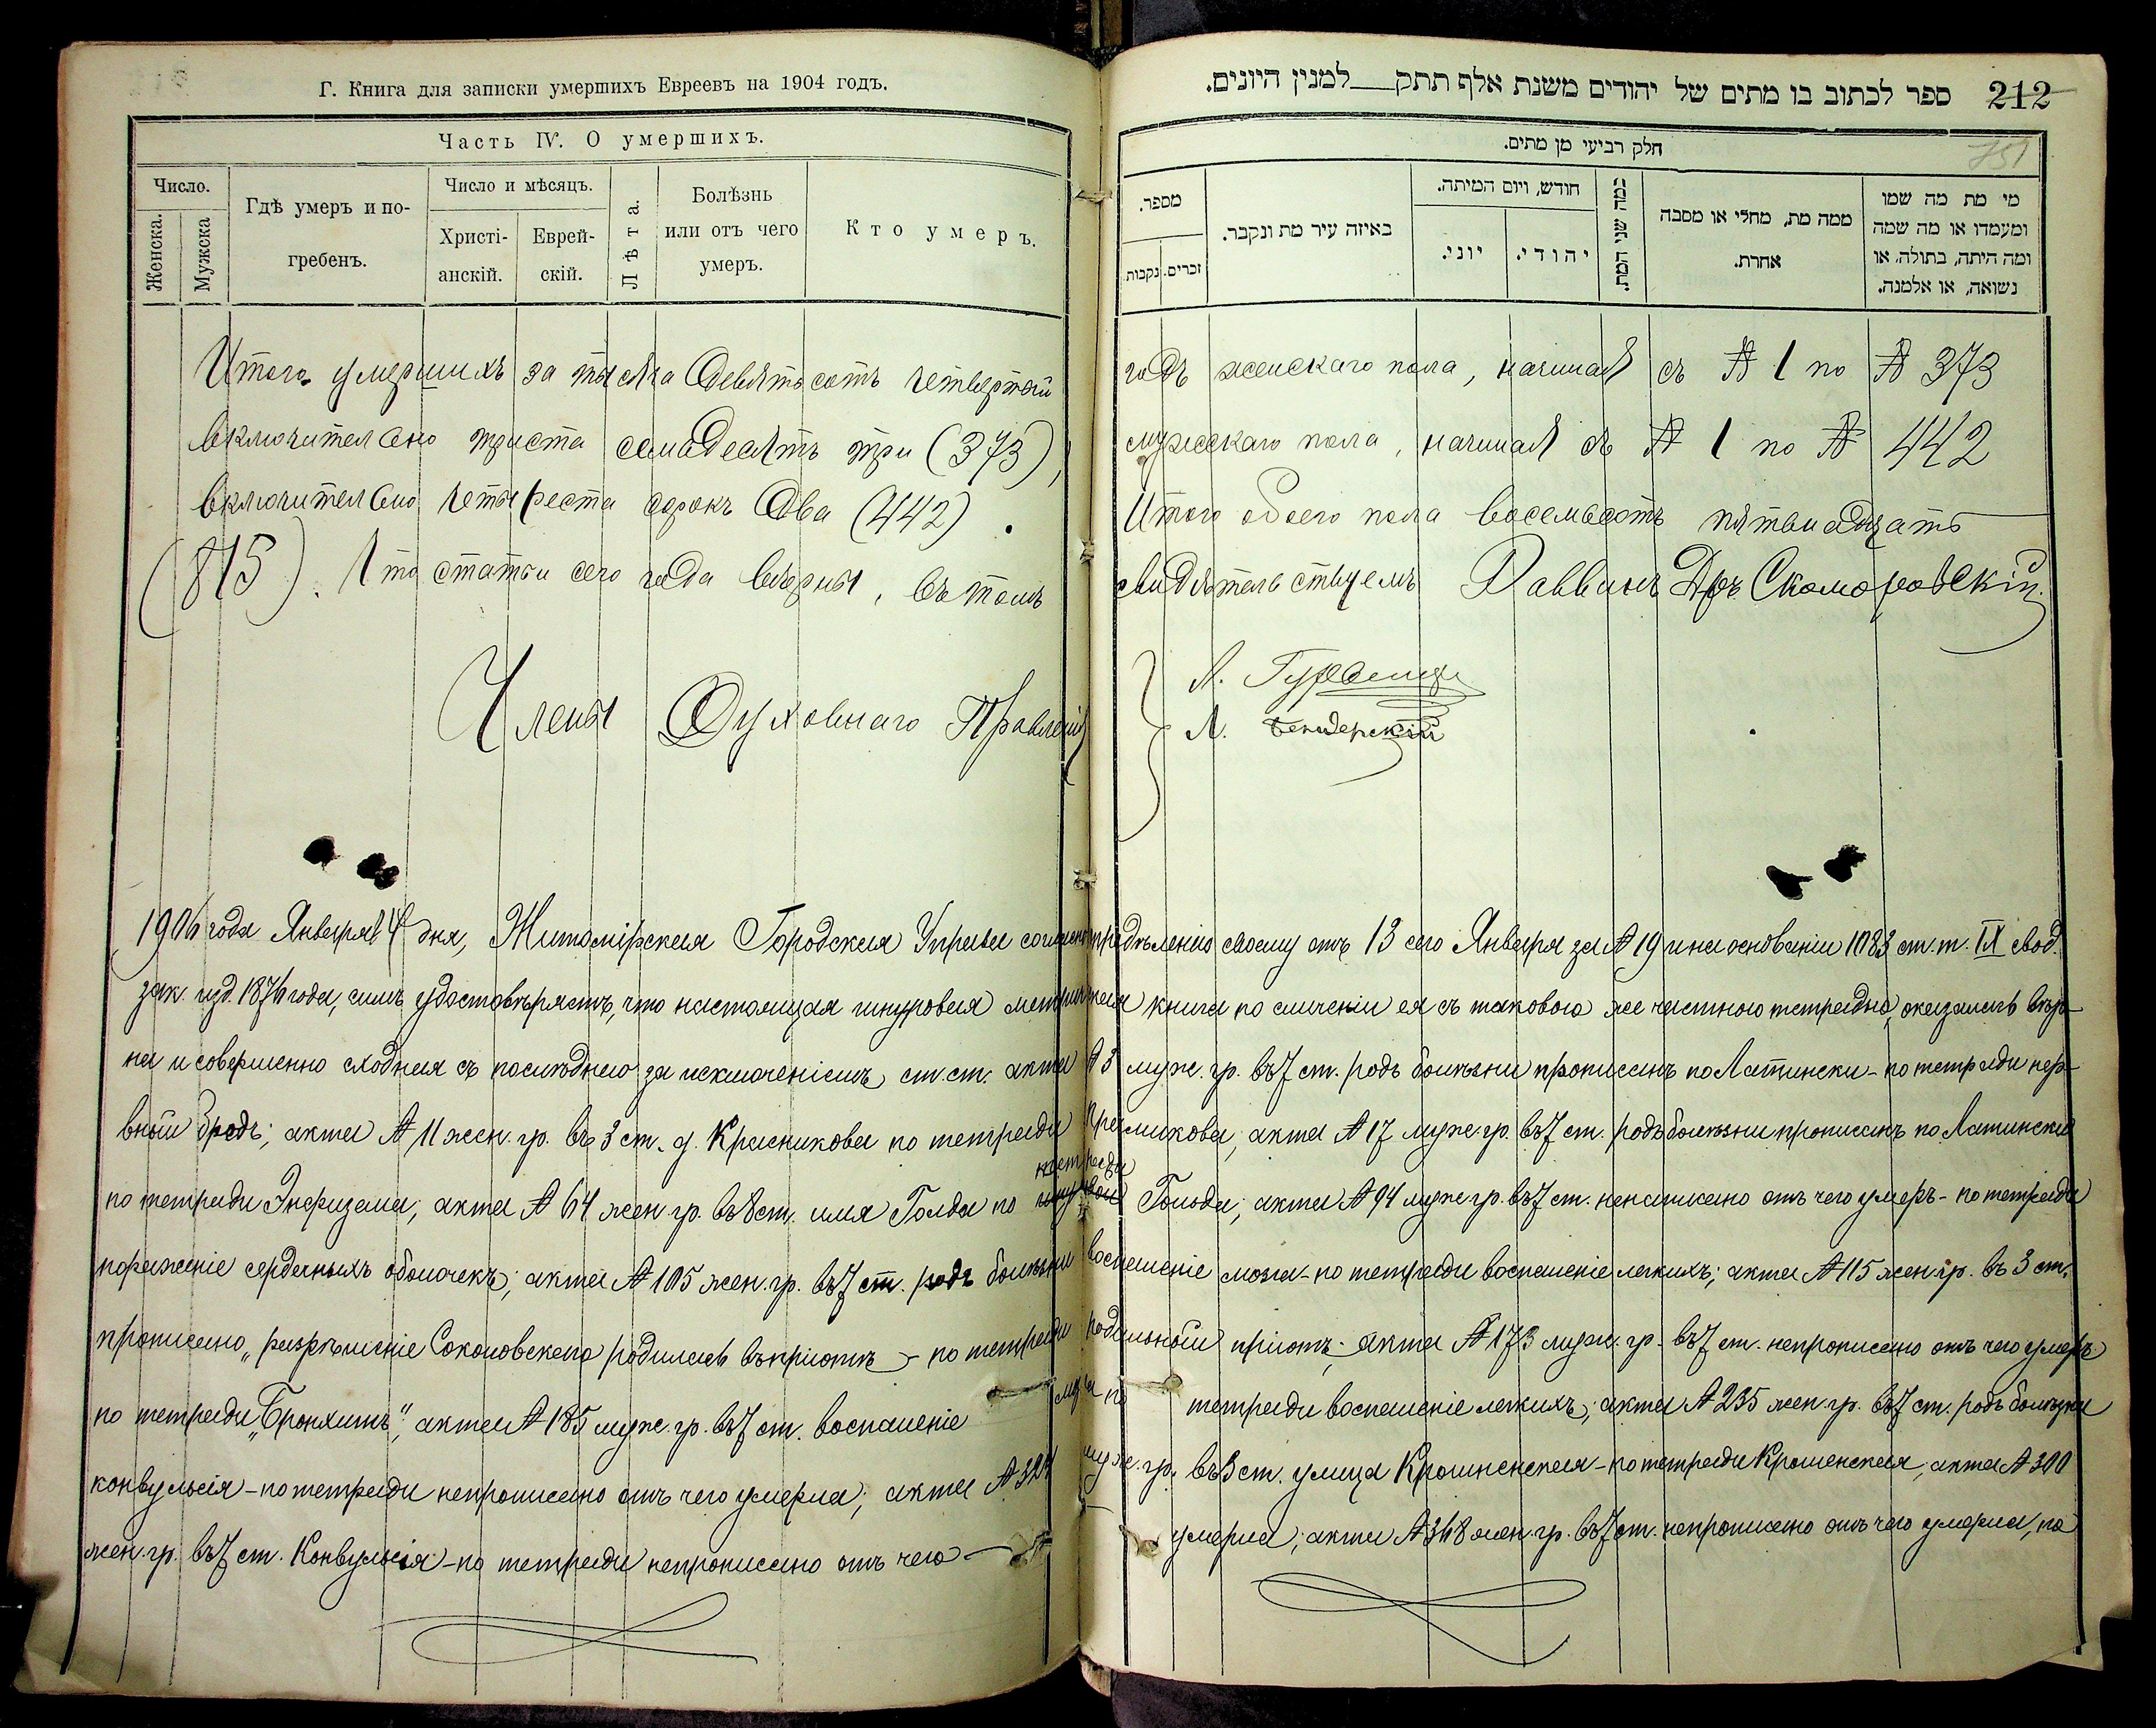 Г. Книга для записки умершихъ Евреевъ на 1904 годъ.
Часть IV. О умершихъ.
Число.
Женска.
Мужска
Гдѣ умеръ и по-
гребенъ.
Число и мѣсяцъ.
Христі-
анскій.
Еврей-
скій.
Лѣта.
Болѣзнь
или отъ чего
умеръ.
Кто умеръ.
ספר לכתוב בו מתים של יהודים משנת אלף תתק למנין היונים.
212
751
חלק רביעי מן מתים.
מספר.
נקבות
זכרים.
באיזה עיר מת ונקבר.
חודש, ויום המיתה.
יוני.
יהודי.
כמה שני המת.
ממה מת, מחלי או מסבה
אחרת.
מי מת מה שמו
ומעמדו או מה שמה
ומה היתה, בתולה, או
נשואה, או אלמנה.
Итого умершихъ за тысяча девятьсотъ четвертый годъ женскаго пола, начиная съ № 1 по № 373
включительно триста семьдесятъ три (373), мужескаго пола, начиная съ № 1 по № 442
включительно четыреста сорокъ два (442). Итого обоего пола восемьсотъ пятнадцать
(815). Что статьи сего года вѣрны, въ томъ свидѣтельствуемъ Раввинъ Дръ Скоморовскій.
Члены Духовнаго Правленія
Л. Гурвицъ
Л. Бендерскій
1906 года Января 14 дня, Житомірская Городская Управа согласно опредѣленію своему отъ 13 сего Января за № 19 и на основаніи 1083 ст. т. IX свод.
зак. изд. 1876 года, симъ удостовѣряетъ, что настоящая шнуровая метрическая книга по сличеніи ея съ таковою же частною тетрадью, оказалась вѣр-
на и совершенно сходная съ послѣднею за исключеніемъ ст. ст. акта № 3 муж. гр. въ 7 ст. родъ болѣзни прописанъ по Латински - по тетради нер-
вный бредъ; акта № 11 жен. гр. въ 3 ст. д. Красникова по тетради Прасликова; акта № 17 муж. гр. въ 7 ст. родъ болѣзни прописанъ по Латински
по тетради Энфизема; акта № 64 жен. гр. въ 8 ст. имя Голда по тетради Гольда; акта № 94 муж. гр. въ 7 ст. ненаписано отъ чего умеръ - по тетради
пораженіе сердечныхъ оболочекъ; акта № 105 жен. гр. въ 7 ст. родъ болѣзни воспаленіе мозга - по тетради воспаленіе легкихъ; акта № 115 жен. гр. въ 3 ст.
прописано „разрѣшеніе Соколовскаго родилась въ пріютѣ - по тетради родильный пріютъ; акта № 173 муж. гр. въ 7 ст. непрописано отъ чего умеръ
по тетради „Бронхитъ“, акта № 185 муж. гр. въ 7 ст. воспаленіе мозга по тетради воспаленіе легкихъ; акта № 235 жен. гр. въ 7 ст. родъ болѣзни
конвульсія - по тетради непрописано отъ чего умерла; акта № 324 муж. гр. въ 3 ст. улица Крошненская - по тетради Крошенская; акта № 300
жен. гр. въ 7 ст. Конвульсія - по тетради непрописано отъ чего умерла; акта № 348 жен. гр. въ 7 ст. непрописано отъ чего умерла, по